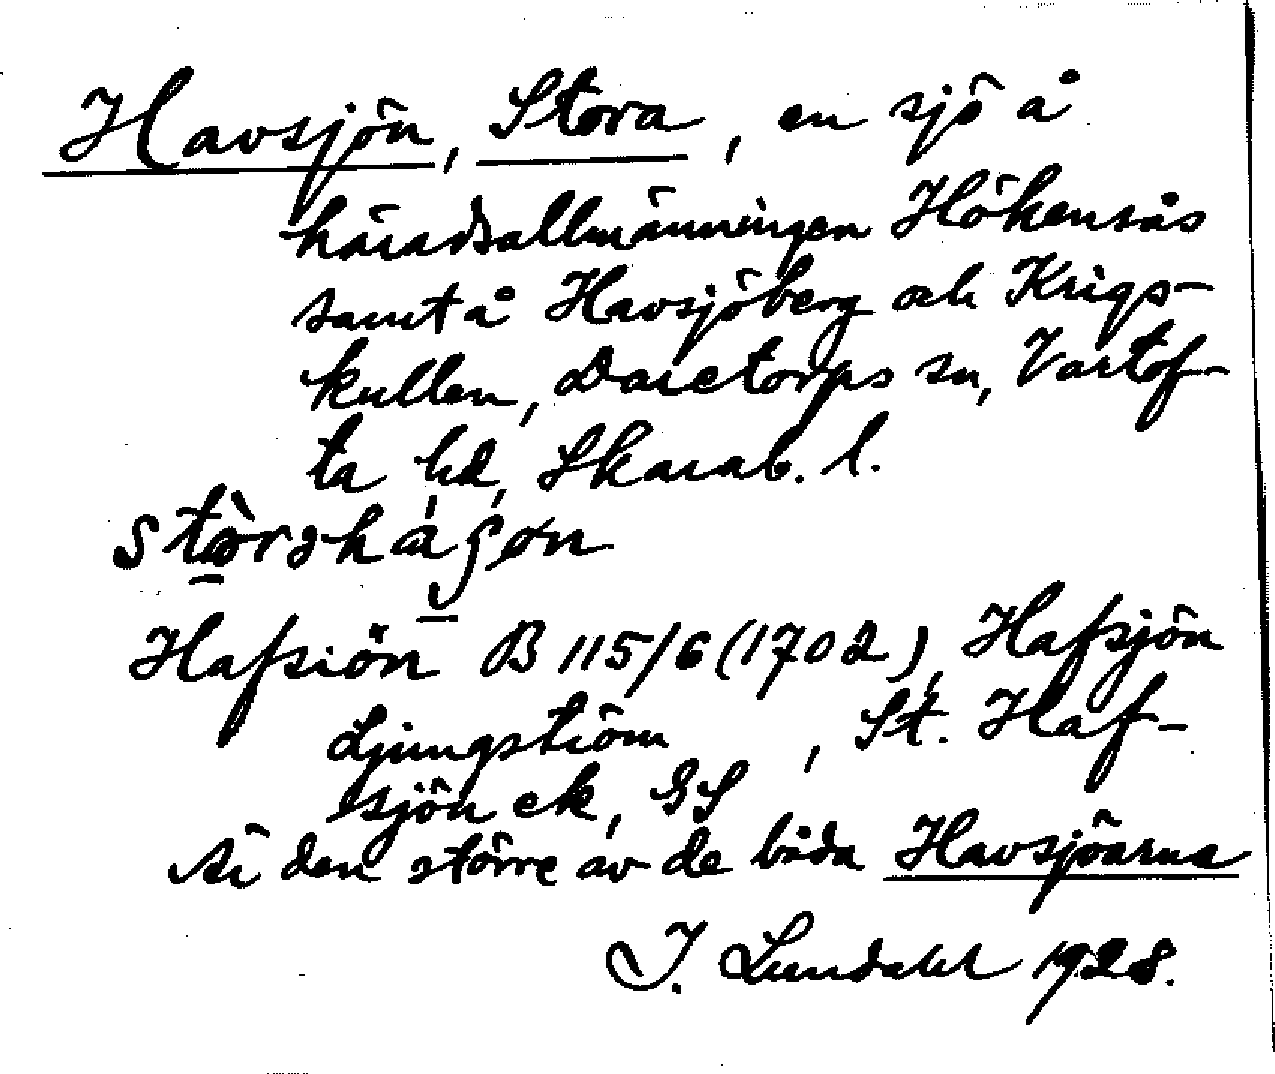 Havsjön, Stora, en sjö å
häradsallmänningen Hökensås
samt å Havsjöberg och Krigs-
kullen, Daretorps sn, Vartof-
ta hd, Skarab. l.
Hafsiön B 115/6 (1702), Hafsjön
Ljungström, St. Haf-
sjön ek, GS
Är den större av de båda Havsjöarna
I. Lundahl 1928.